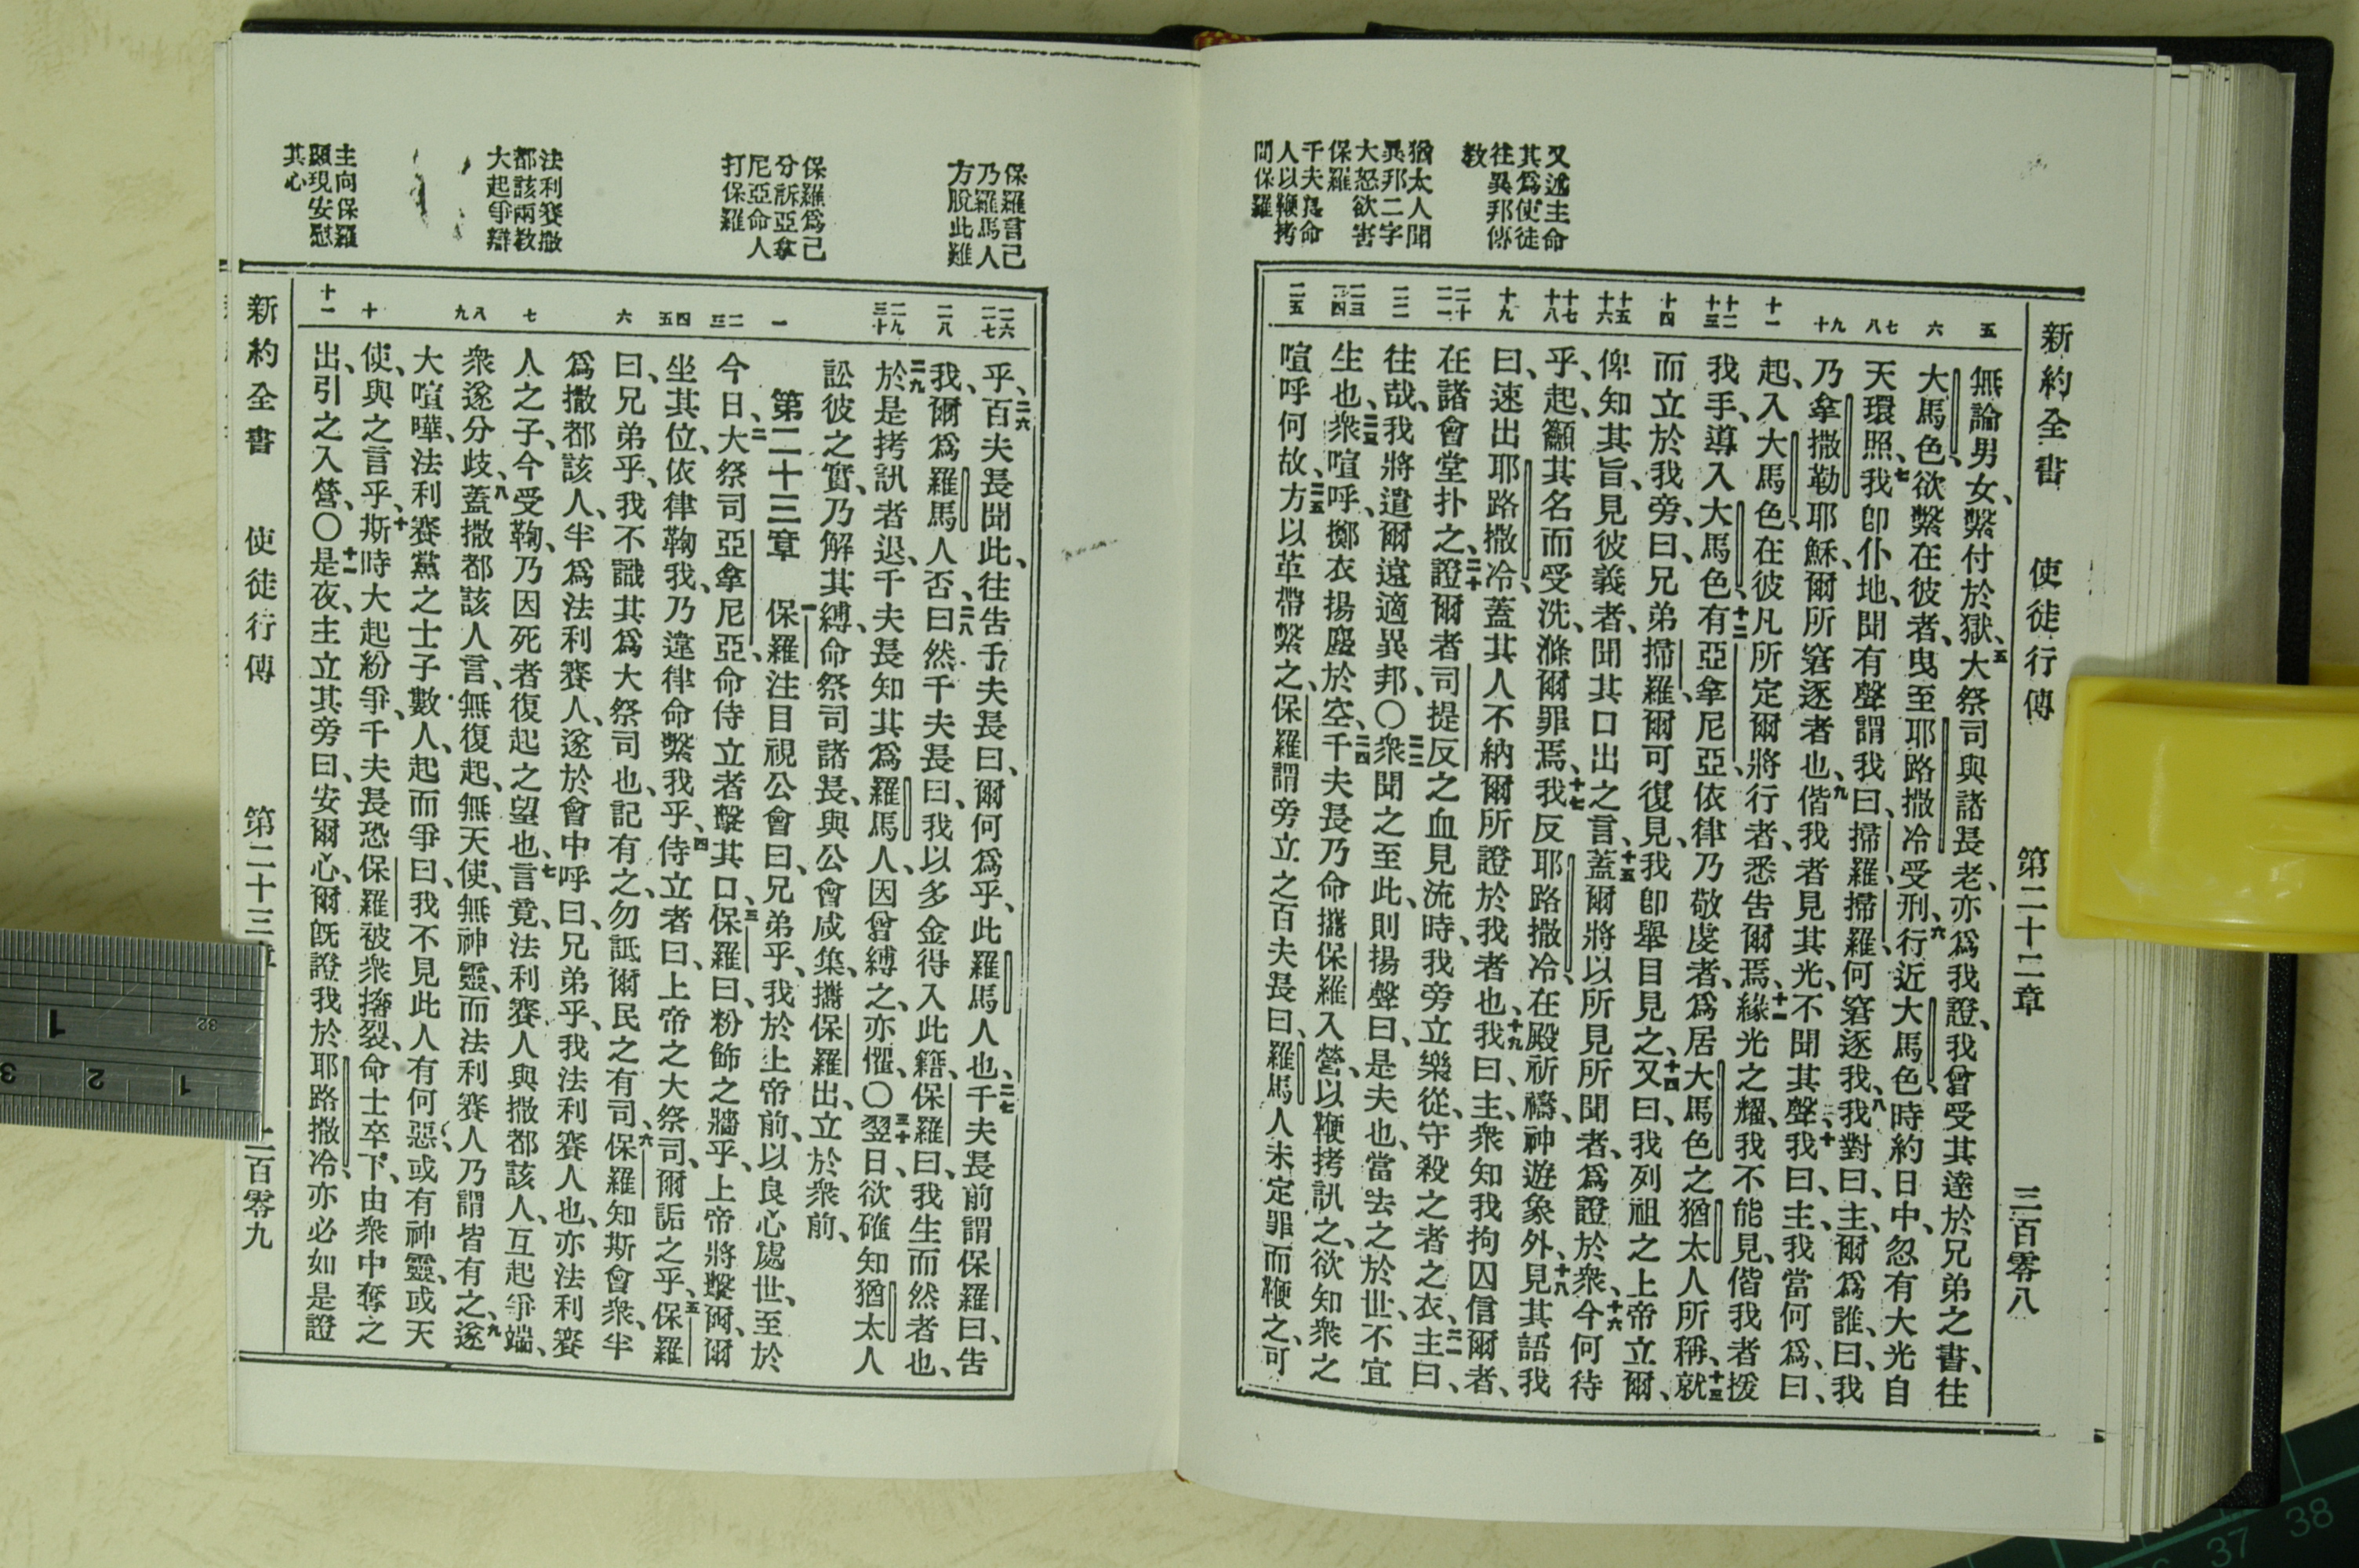 又述主命
其爲使徒
往異邦傳
教
猶太人聞
異邦二字
大怒欲害
保羅
千夫長命
人以鞭拷
問保羅
新約全書 使徒行傳 第二十二章 三百零八
五
六
七 八
九 十
十一
十二 十三
十四
十五 十六
十七 十八
十九
二十 二一
二二
二三 二四
二五
無論男女、繫付於獄、五大祭司與諸長老、亦爲我證、我曾受其達於兄弟之書、往
大馬色、欲繫在彼者、曳至耶路撒冷受刑、六行近大馬色、時約日中、忽有大光自
天環照、七我卽仆地、聞有聲謂我曰、掃羅掃羅、何窘逐我、八我對曰、主、爾爲誰、曰、我
乃拿撒勒耶穌、爾所窘逐者也、九偕我者見其光、不聞其聲、十我曰、主、我當何爲、曰、
起、入大馬色、在彼凡所定爾將行者、悉告爾焉、十一緣光之耀、我不能見、偕我者援
我手、導入大馬色、十二有亞拿尼亞、依律乃敬虔者、爲居大馬色之猶太人所稱、十三就
而立於我旁、曰、兄弟掃羅、爾可復見、我卽舉目見之、十四又曰、我列祖之上帝立爾、
俾知其旨、見彼義者、聞其口出之言、十五蓋爾將以所見所聞者、爲證於衆、十六今何待
乎、起、籲其名而受洗、滌爾罪焉、十七我反耶路撒冷、在殿祈禱、神遊象外、十八見其語我
曰、速出耶路撒冷、蓋其人不納爾所證於我者也、十九我曰、主、衆知我拘囚信爾者、
在諸會堂扑之、二十證爾者司提反之血見流時、我旁立樂從、守殺之者之衣、二一主曰、
往哉、我將遣爾遠適異邦、〇二二衆聞之至此、則揚聲曰、是夫也、當去之於世、不宜
生也、二三衆喧呼、擲衣揚塵於空、二四千夫長乃命攜保羅入營、以鞭拷訊之、欲知衆之
喧呼何故、二五方以革帶繫之、保羅謂旁立之百夫長曰、羅馬人未定罪而鞭之、可
保羅言己
乃羅馬人
方脫此難
保羅爲己
分訴亞拿
尼亞命人
打保羅
法利賽撒
都該兩教
大起爭辯
主向保羅
顯現安慰
其心
二六 二七
二八
二九 三十
一
二 三
四 五
六
七
八 九
十
十一
乎、二六百夫長聞此、往告千夫長曰、爾何爲乎、此羅馬人也、二七千夫長前謂保羅曰、告
我、爾爲羅馬人否、曰、然、二八千夫長曰、我以多金得入此籍、保羅曰、我生而然者也、
二九於是拷訊者退、千夫長知其爲羅馬人、因曾縛之、亦懼、〇三十翌日、欲確知猶太人
訟彼之實、乃解其縛、命祭司諸長、與公會咸集、攜保羅出、立於衆前、
第二十三章 一保羅注目視公會曰、兄弟乎、我於上帝前、以良心處世、至於
今日、二大祭司亞拿尼亞、命侍立者擊其口、三保羅曰、粉飾之牆乎、上帝將擊爾、爾
坐其位、依律鞫我、乃違律命繫我乎、四侍立者曰、上帝之大祭司、爾詬之乎、五保羅
曰、兄弟乎、我不識其爲大祭司也、記有之、勿詆爾民之有司、六保羅知斯會衆、半
爲撒都該人、半爲法利賽人、遂於會中呼曰、兄弟乎、我法利賽人也、亦法利賽
人之子、今受鞫、乃因死者復起之望也、七言竟、法利賽人與撒都該人、互起爭端、
衆遂分歧、八蓋撒都該人言、無復起、無天使、無神靈、而法利賽人乃謂皆有之、九遂
大喧嘩、法利賽黨之士子數人、起而爭曰、我不見此人有何惡、或有神靈、或天
使、與之言乎、十斯時大起紛爭、千夫長恐保羅被衆擠裂、命士卒下、由衆中奪之
出、引之入營、〇十一是夜、主立其旁曰、安爾心、爾旣證我於耶路撒冷、亦必如是證
新約全書 使徒行傳 第二十三章 三百零九
32
1
3 2 1
37 38